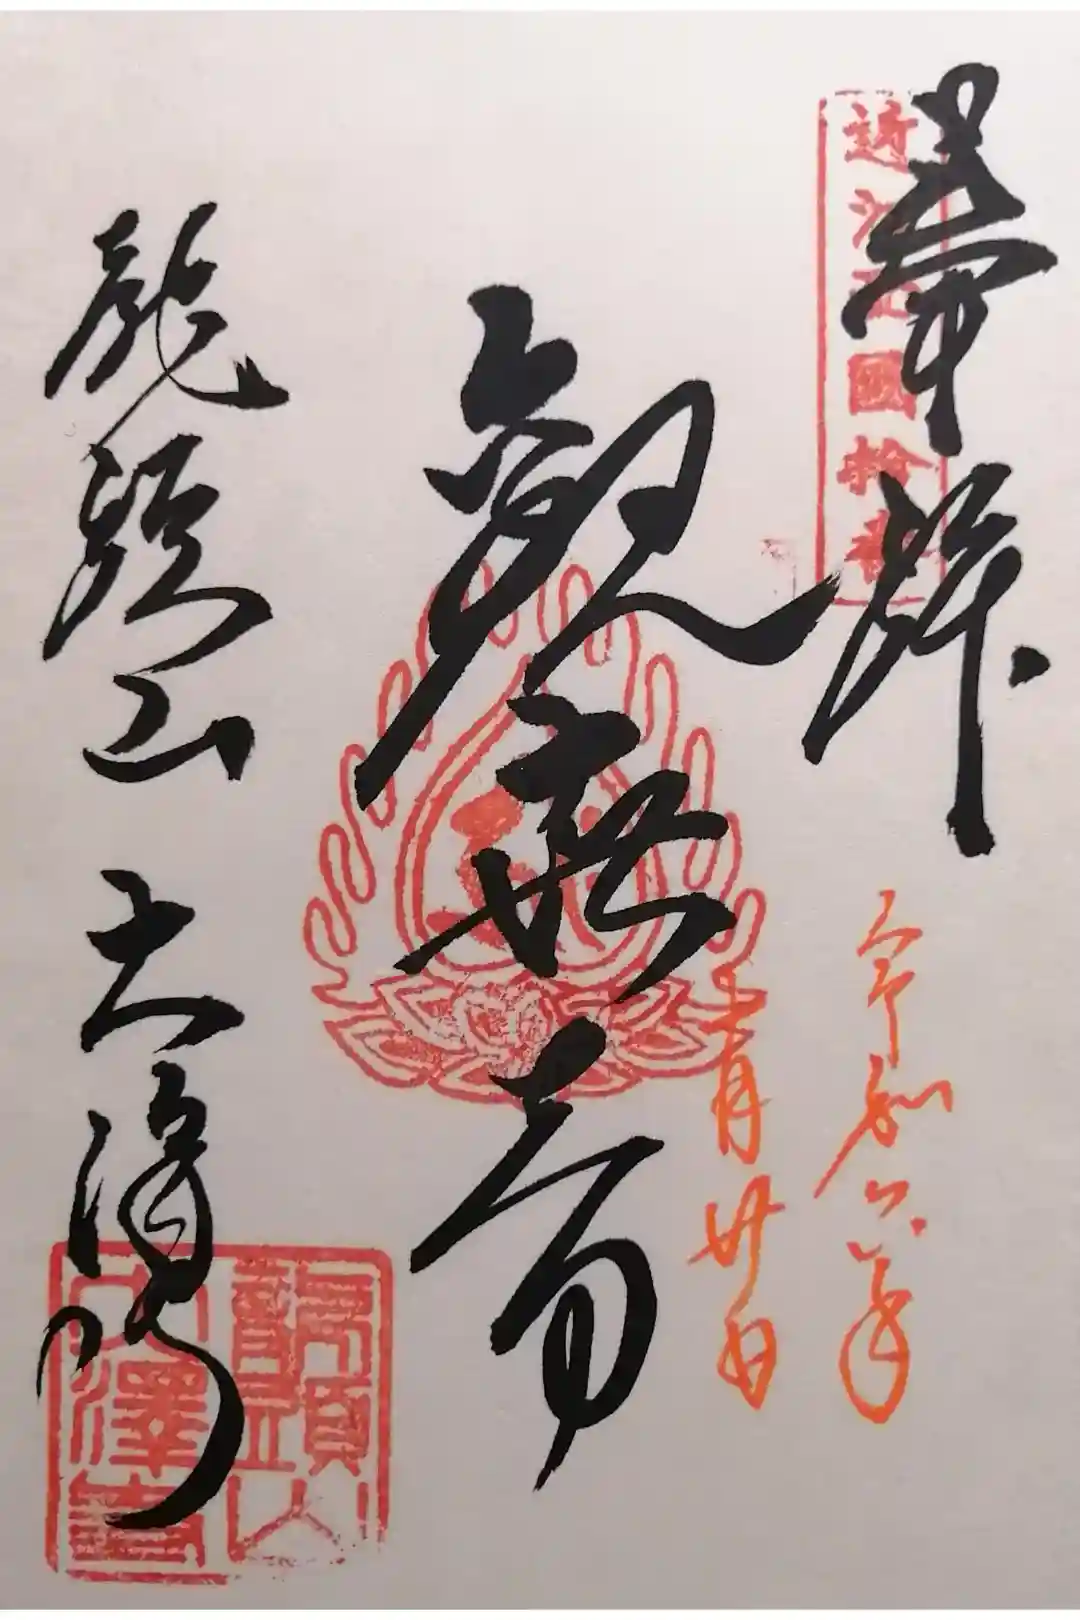 奉拝
近江西國拾番
令和六年
十一月廿日
観世音
龍頭山 大澤寺
龍頭山
大澤寺